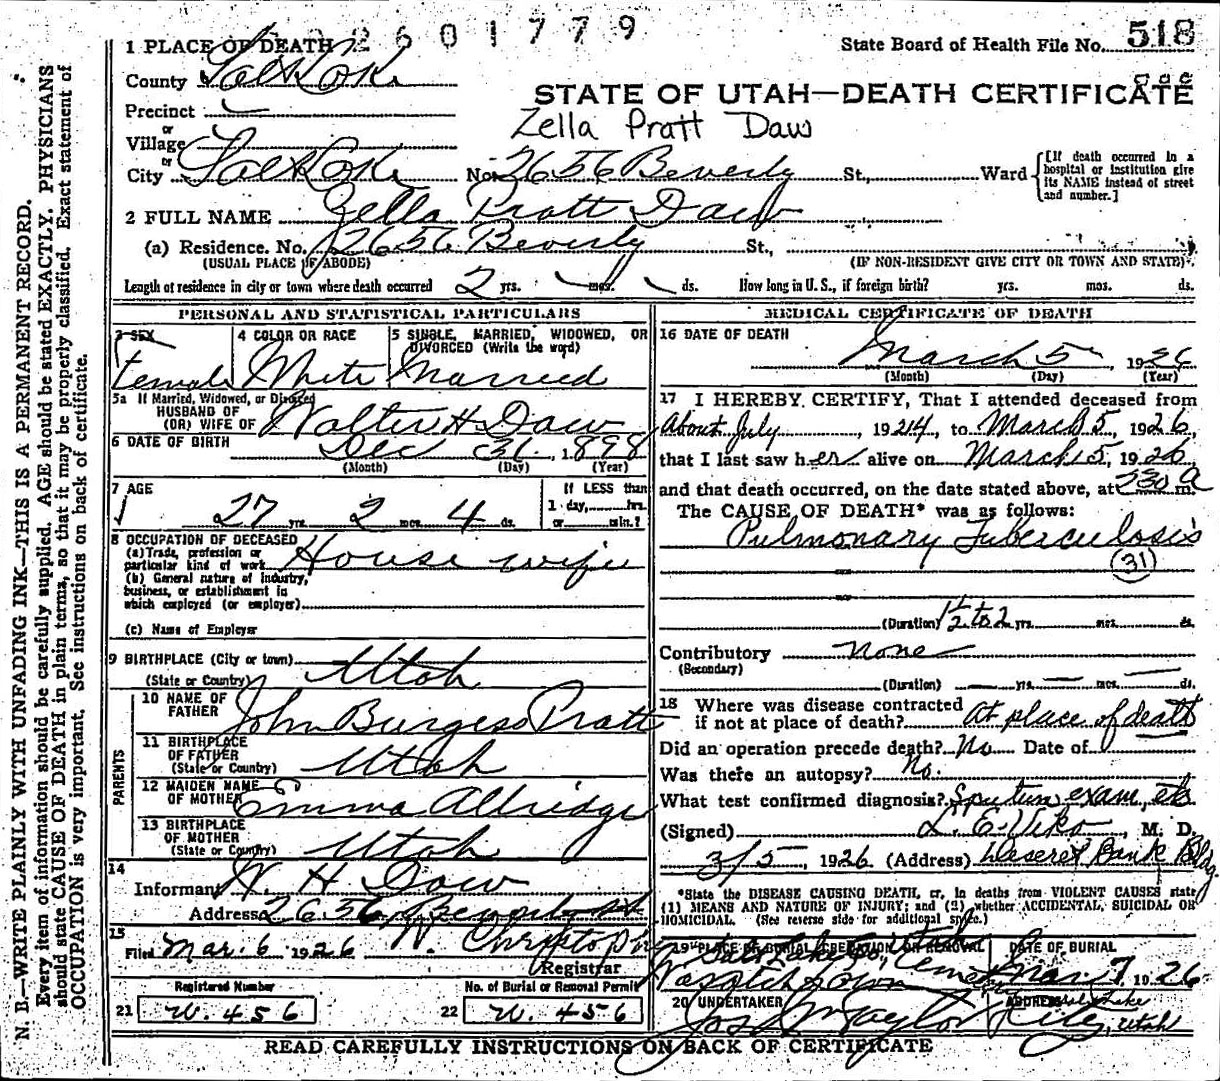 2601779
State Board of Health File No. 518
1 PLACE OF DEATH
County Salt Lake
STATE OF UTAH—DEATH CERTIFICATE
Precinct
Zella Pratt Daw
or
Village
or
City Salt Lake No. 2656 Beverly St., Ward [If death occurred in a hospital or institution give its NAME instead of street and number.]
2 FULL NAME Zella Pratt Daw
(a) Residence. No. 2656 Beverly St.,
(USUAL PLACE OF ABODE) (IF NON-RESIDENT GIVE CITY OR TOWN AND STATE)
Length of residence in city or town where death occurred 2 yrs. mos. ds. How long in U. S., if foreign birth? yrs. mos. ds.
PERSONAL AND STATISTICAL PARTICULARS
3 SEX 4 COLOR OR RACE 5 SINGLE, MARRIED, WIDOWED, OR DIVORCED (Write the word)
Female White Married
5a If Married, Widowed, or Divorced
HUSBAND OF
(OR) WIFE OF Walter H Daw
6 DATE OF BIRTH Dec 31. 1898
(Month) (Day) (Year)
7 AGE If LESS than
27 yrs. 2 mos. 4 ds. 1 day, hrs.
or min.?
8 OCCUPATION OF DECEASED
(a) Trade, profession or
particular kind of work House wife
(b) General nature of industry,
business, or establishment in
which employed (or employer)
(c) Name of Employer
9 BIRTHPLACE (City or town)
(State or Country) Utah
PARENTS
10 NAME OF
FATHER John Burgess Pratt
11 BIRTHPLACE
OF FATHER
(State or Country) Utah
12 MAIDEN NAME
OF MOTHER Emma Alldridge
13 BIRTHPLACE
OF MOTHER
(State or Country) Utah
14
Informant W. H Daw
Address 2656 Beverly st
15
Filed Mar. 6 1926
Registrar
Registered Number No. of Burial or Removal Permit
21 W. 456 22 W. 456
MEDICAL CERTIFICATE OF DEATH
16 DATE OF DEATH
March 5 1926
(Month) (Day) (Year)
17 I HEREBY CERTIFY, That I attended deceased from
About July, 1924, to March 5, 1926,
that I last saw her alive on March 5, 1926,
and that death occurred, on the date stated above, at 230 a m.
The CAUSE OF DEATH* was as follows:
Pulmonary Tuberculosis
(31)
(Duration) 1½ to 2 yrs. mos. ds.
Contributory none
(Secondary)
(Duration) yrs. mos. ds.
18 Where was disease contracted
if not at place of death? At place of death
Did an operation precede death? No Date of
Was there an autopsy? No.
What test confirmed diagnosis? Sputum exam, etc
(Signed) L. E. Viko, M. D.
3/5, 1926 (Address) Deseret Bank Bldg.
*State the DISEASE CAUSING DEATH, or, in deaths from VIOLENT CAUSES state
(1) MEANS AND NATURE OF INJURY; and (2) whether ACCIDENTAL, SUICIDAL OR
HOMICIDAL. (See reverse side for additional space.)
19 PLACE OF BURIAL, CREMATION, OR REMOVAL DATE OF BURIAL
Salt Lake Co, Utah
Wasatch Lawn Cemetery Mar. 7 1926
20 UNDERTAKER ADDRESS
Jos Wm Taylor Salt Lake City, Utah
READ CAREFULLY INSTRUCTIONS ON BACK OF CERTIFICATE
N. B.—WRITE PLAINLY WITH UNFADING INK—THIS IS A PERMANENT RECORD.
Every item of information should be carefully supplied. AGE should be stated EXACTLY. PHYSICIANS
should state CAUSE OF DEATH in plain terms, so that it may be properly classified. Exact statement of
OCCUPATION is very important. See instructions on back of certificate.